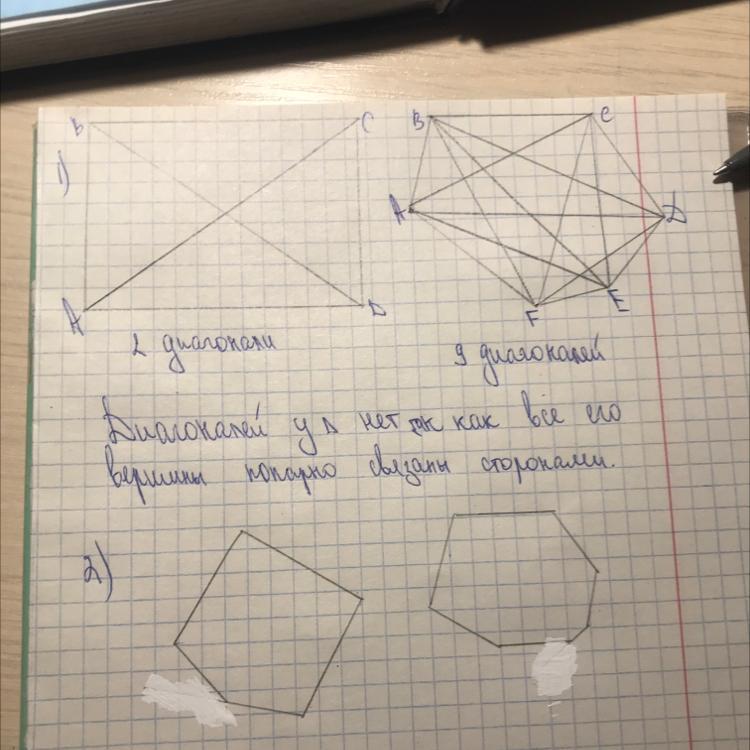 1)
B C
A D
2 диагонали
B C
A D
F E
9 диагоналей
Диагоналей у Δ нет так как все его
вершины попарно связаны сторонами.
2)